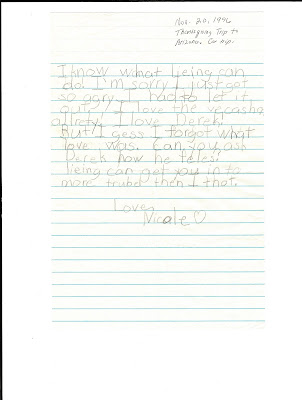 Nov. 20, 1996
Thanksgiving Trip to
Arizona. Car trip.
I now what lieing can
do. I'm sorry I just got
so agry I had to let it
out. I love the vecashon
alrety. I love Derek!
But I gess I forgot what
love was. Can you ask
Derek how he feles?
lieing can get you in to
more truble then I that.
Love,
Nicole ♡